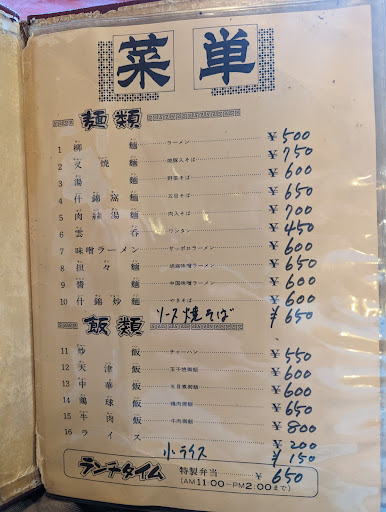 菜単
麺類
1 柳麺 ラーメン ¥500
2 叉焼麺 焼豚入そば ¥750
3 湯麺 野菜そば ¥600
4 什錦湯麺 五目そば ¥650
5 肉絲湯麺 肉入そば ¥700
6 雲呑 ワンタン ¥450
7 味噌ラーメン サッポロラーメン ¥600
8 担々麺 胡麻味噌ラーメン ¥650
9 醬麺 中国味噌ラーメン ¥600
10 什錦炒麺 やきそば ¥600
飯類 ソース焼そば ¥650
11 炒飯 チャーハン ¥550
12 天津飯 玉子焼御飯 ¥600
13 中華飯 五目煮御飯 ¥600
14 鶏球飯 鶏肉御飯 ¥650
15 牛肉飯 牛肉御飯 ¥800
16 ライス ¥200
小ライス ¥150
ランチタイム 特製弁当 ¥650
(AM11:00〜PM2:00まで)